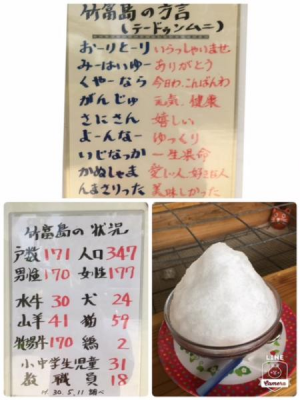 竹富島の方言
(テードゥンムニ)
おーりとーり いらっしゃいませ
みーはいゆー ありがとう
くやーなら 今日わ、こんばんわ
がんじゅ 元気、健康
さにさん 嬉しい
よーんなー ゆっくり
いじなっか 一生懸命
かぬしゃま 愛しい人、好きな人
んまさりった 美味しかった
竹富島の状況
戸数 171 人口 347
男性 170 女性 177
水牛 30 犬 24
山羊 41 猫 59
牧場牛 190 鶏 2
小中学生児童 31
教職員 18
H30.5.11調べ
LINE
Camera